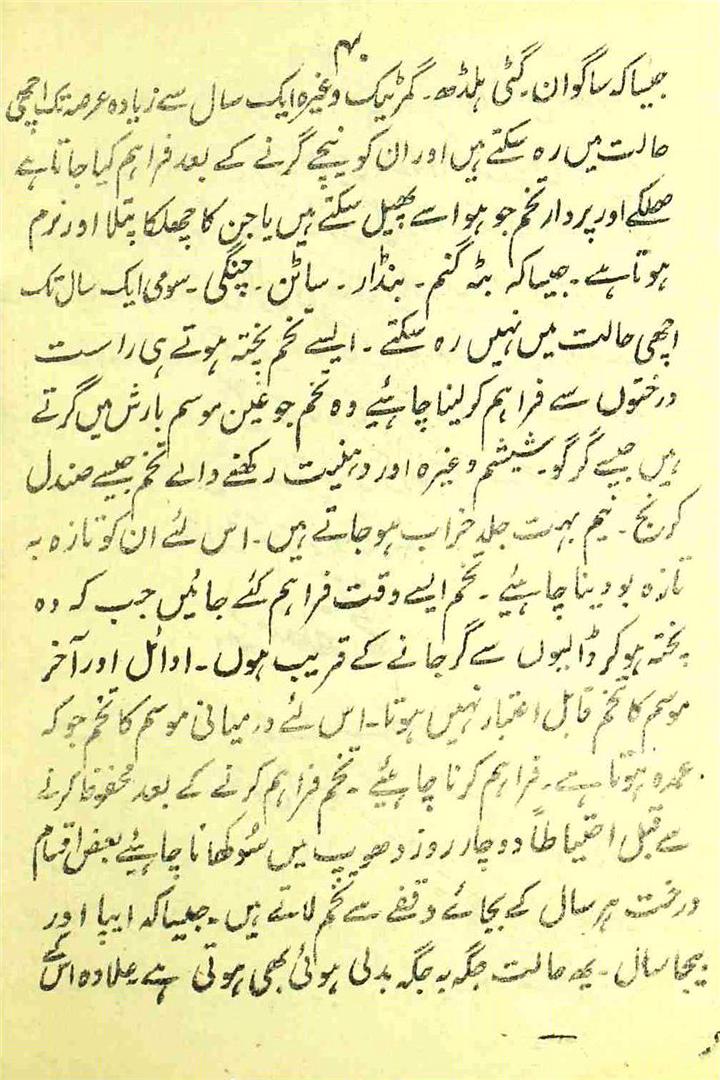 ۴۰
جیساکہ ساگوان۔ گٹی ہلدھ۔ گمڑٹیک وغیرہ ایک سال سے زیادہ عرصہ تک اچھی
حالت میں رہ سکتے ہیں اور ان کو نیچے گرنے کے بعد فراہم کیا جاتا ہے
ھلکے اور پردار تخم جو ہوا سے پھیل سکتے ہیں یا جن کا چھلکا پتلا اور نرم
ہوتا ہے۔ جیساکہ بٹہ گنم۔ بنڈار۔ ساٹن۔ چنگی۔ سومی ایک سال تک
اچھی حالت میں نہیں رہ سکتے۔ ایسے تخم پختہ ہوتے ہی راست
درختوں سے فراہم کرلینا چاہئیے وہ تخم جو عین موسم بارش میں گرتے
ہیں جیسے گرگو۔ شیشم وغیرہ اور دہنیت رکھنے والے تخم جیسے صندل
کرنج۔ نیم بہت جلد خراب ہوجاتے ہیں۔ اس لئے ان کو تازہ بہ
تازہ بو دینا چاہئیے۔ تخم ایسے وقت فراہم کئے جائیں جب کہ وہ
پختہ ہوکر ڈالیوں سے گرجانے کے قریب ہوں۔ اوائل اور آخر
موسم کا تخم قابل اعتبار نہیں ہوتا۔ اس لئے درمیانی موسم کا تخم جوکہ
عمدہ ہوتا ہے۔ فراہم کرنا چاہئیے۔ تخم فراہم کرنے کے بعد محفوظ کرنے
سے قبل احتیاطاً دو چار روز دھوپ میں سُوکھانا چاہئیے بعض اقسام
درخت ہر سال کے بجائے وقفے سے تخم لاتے ہیں۔ جیساکہ ایپا اور
بیجا سال۔ یہ حالت جگہ بہ جگہ بدلی ہوئی بھی ہوتی ہے علاوہ اس کے